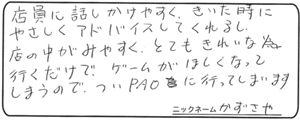 店員に話しかけやすく、きいた時に
やさしくアドバイスしてくれるし、
店の中がみやすく、とてもきれいな為
行くだけで、ゲームがほしくなって
しまうので、ついPAOに行ってしまいます
ニックネーム かずさや